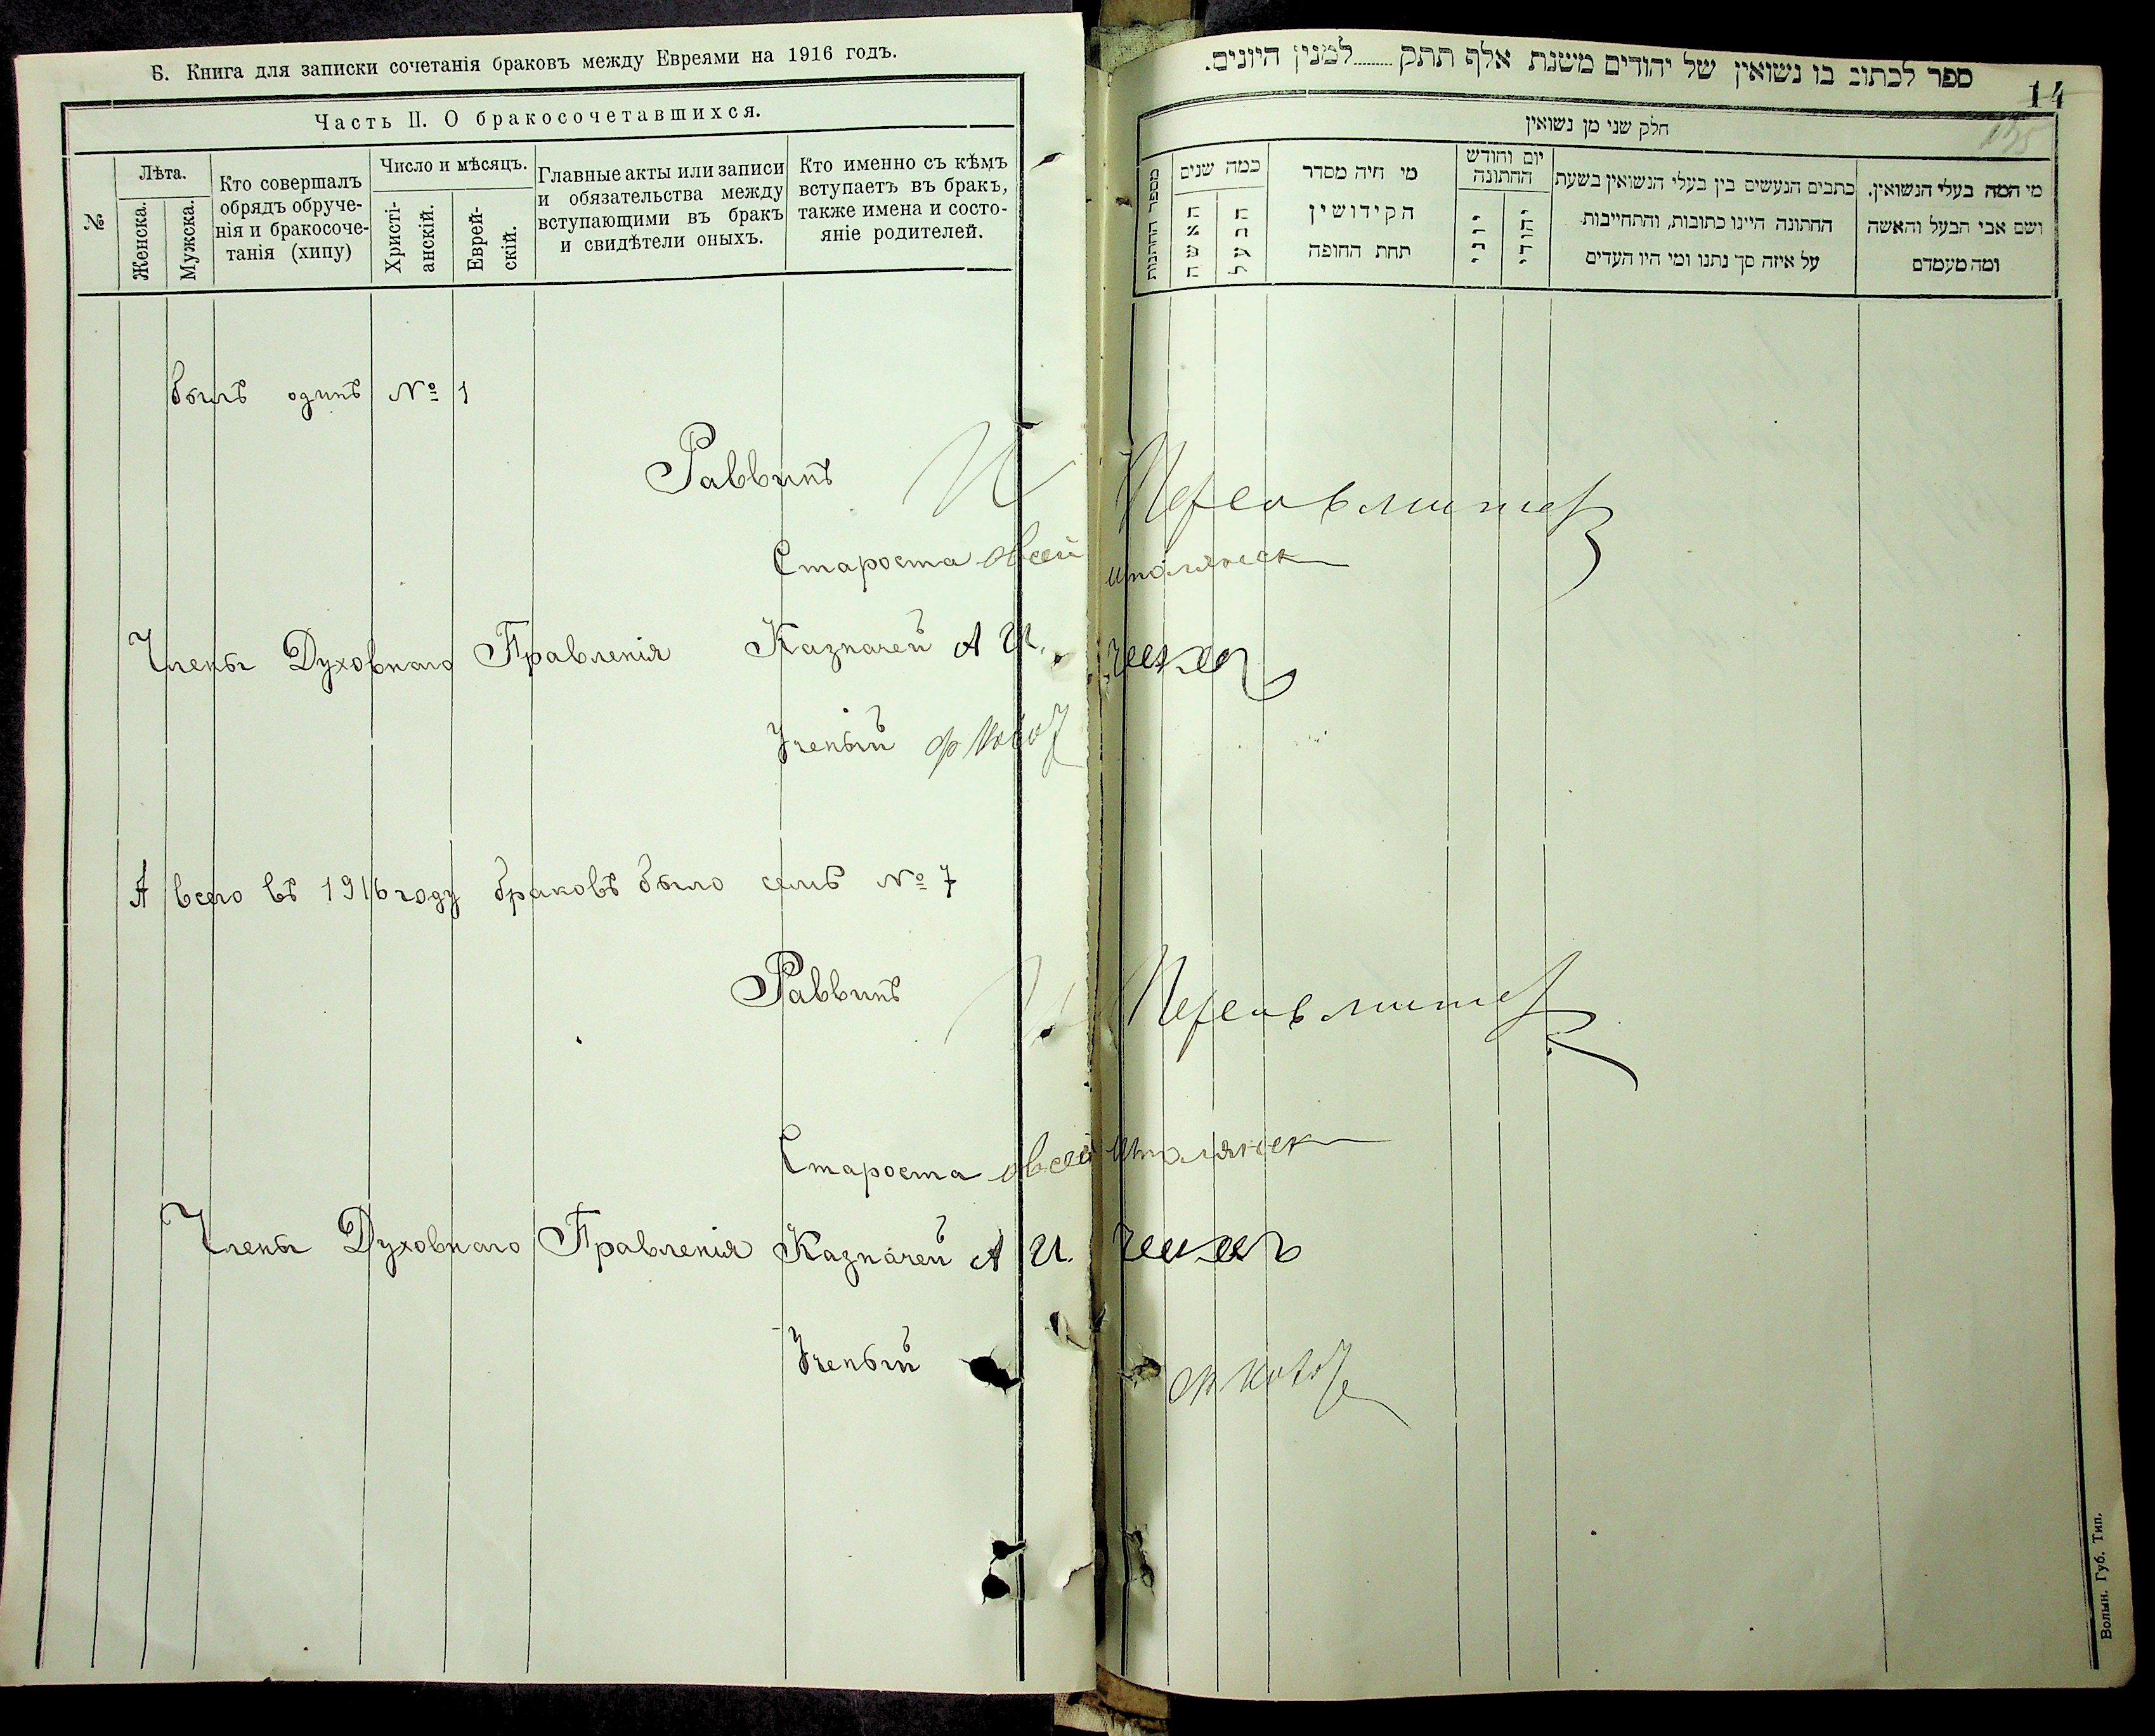 Б. Книга для записки сочетанія браковъ между Евреями на 1916 годъ.
Часть II. О бракосочетавшихся.
№
Лѣта.
Женска.
Мужска.
Кто совершалъ
обрядъ обруче-
нія и бракосоче-
танія (хипу)
Число и мѣсяцъ.
Христі-
анскій.
Еврей-
скій.
Главные акты или записи
и обязательства между
вступающими въ бракъ
и свидѣтели оныхъ.
Кто именно съ кѣмъ
вступаетъ въ бракъ,
также имена и состо-
яніе родителей.
былъ одинъ № 1
Раввинъ
Староста Овсей
Члены Духовнаго Правленія Казначей А И.
Ученый
А всего въ 1916 году браковъ было семь № 7
Раввинъ
Староста Овсей
Члены Духовнаго Правленія Казначей А И.
Ученый
ספר לכתוב בו נשואין של יהודים משנת אלף תתק........למנין היונים.
14
חלק שני מן נשואין
מי המה בעלי הנשואין.
ושם אבי הבעל והאשה
ומה מעמדם
כתבים הנעשים בין בעלי הנשואין בשעת
החתונה היינו כתובות, והתחייבות
על איזה סך נתנו ומי היו העדים
יום וחודש
החתונה
יהודי
יוני
מי היה מסדר
הקידושין
תחת החופה
כמה שנים
הבעל
האשה
מספר החתונות
Волын. Губ. Тип.